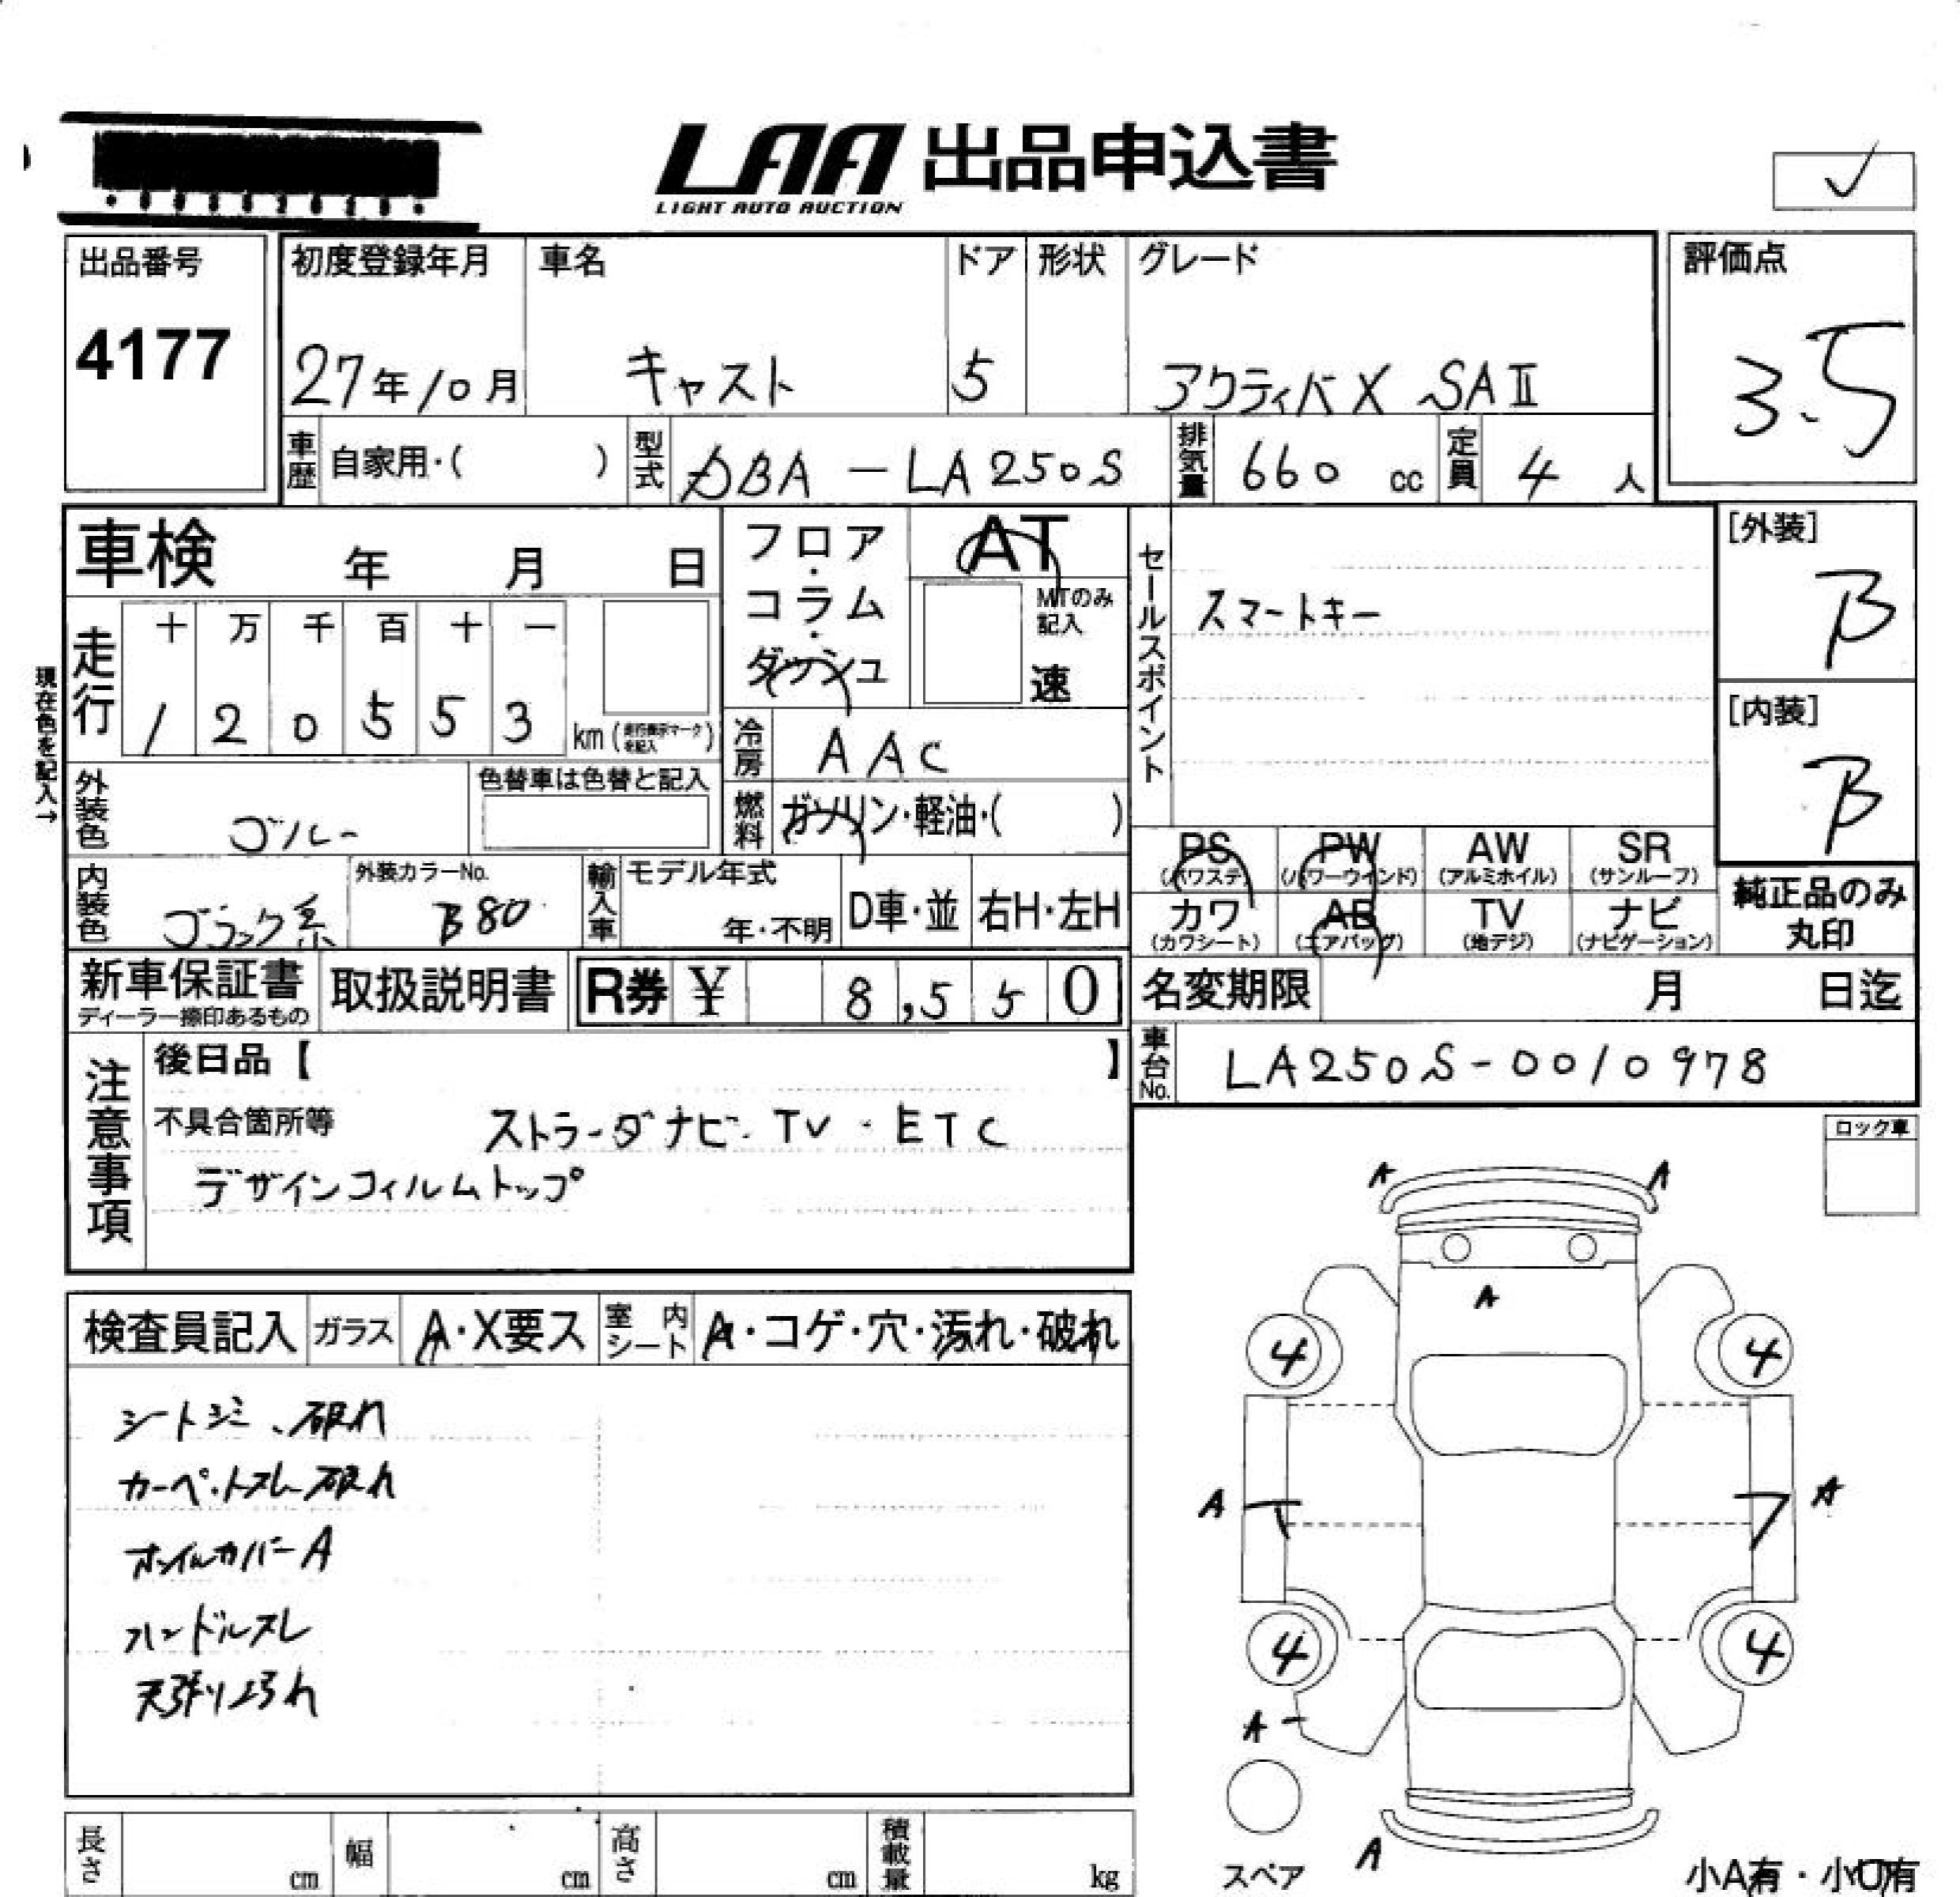 LAA 出品申込書
LIGHT AUTO AUCTION
出品番号
4177
初度登録年月
27年10月
車名
キャスト
ドア
5
形状
グレード
アクティバX SAⅡ
評価点
3.5
車歴 自家用・( )
型式 DBA-LA250S
排気量 660 cc
定員 4 人
車検 年 月 日
フロア・コラム・ダッシュ
AT
MTのみ記入
速
セールスポイント
スマートキー
[外装]
B
[内装]
B
現在色を記入→
走行
十 万 千 百 十 一
1 2 0 5 5 3 km
冷房 AAC
外装色 ブルー
色替車は色替と記入
燃料 ガソリン・軽油・( )
PS (パワステ)
PW (パワーウインド)
AW (アルミホイル)
SR (サンルーフ)
カワ (カワシート)
AB (エアバッグ)
TV (地デジ)
ナビ (ナビゲーション)
純正品のみ丸印
内装色 ブラック系
外装カラーNo.
B80
輸入車 モデル年式
年・不明
D車・並
右H・左H
新車保証書
取扱説明書
R券 ¥ 8,550
名変期限 月 日迄
車台No. LA250S-0010978
注意事項
後日品【 】
不具合箇所等
ストラーダナビ・TV・ETC
デザインフィルムトップ
ロック車
検査員記入
ガラス A・X要ス
室内シート A・コゲ・穴・汚れ・破れ
シートシミ、破れ
カーペットスレ破れ
ホイルカバーA
ハンドルスレ
天張り汚れ
A A
A
4 4
A A
4 4
A
A
スペア
小A有・小U有
長さ cm
幅 cm
高さ cm
積載量 kg